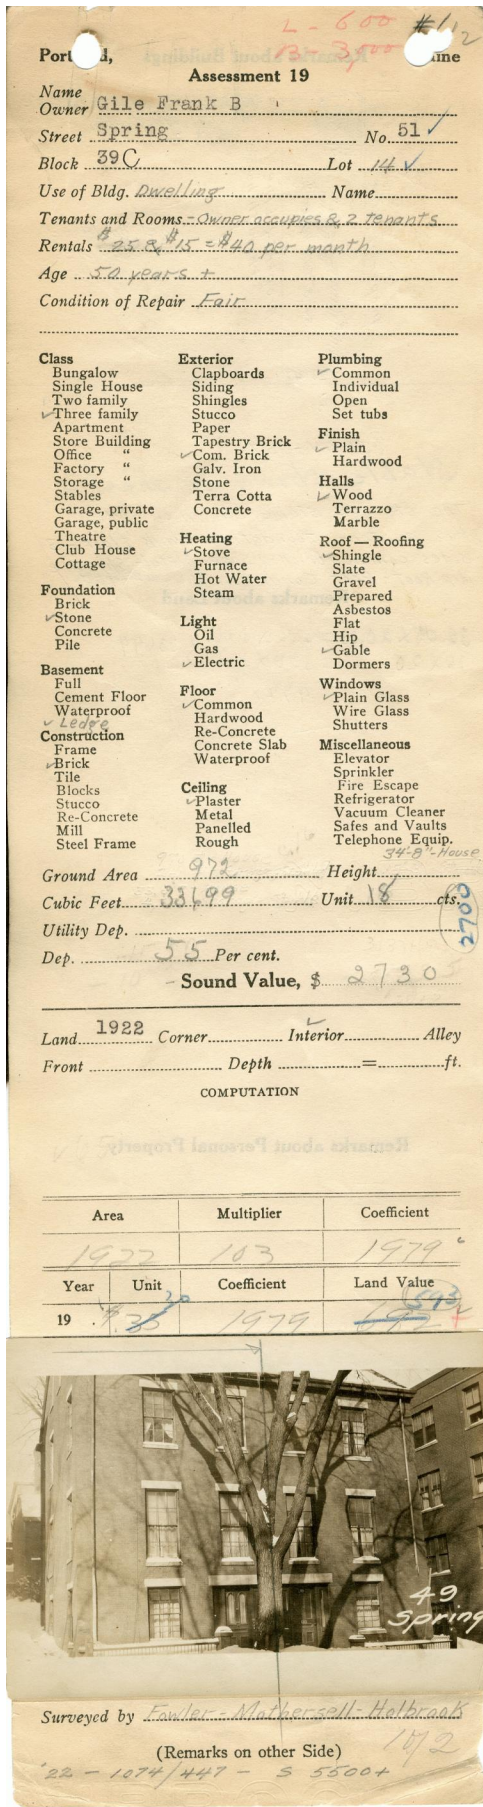 L - 600 #1/2
B - 3,000
Portland, Maine
Assessment 19
Name
Owner Gile Frank B
Street Spring No. 51 ✓
Block 39C Lot 14 ✓
Use of Bldg. Dwelling Name
Tenants and Rooms - Owner occupies & 2 tenants
Rentals $25 & $15 = $40 per month
Age 50 years +
Condition of Repair Fair
Class
Bungalow
Single House
Two family
✓Three family
Apartment
Store Building
Office "
Factory "
Storage "
Stables
Garage, private
Garage, public
Theatre
Club House
Cottage
Foundation
Brick
✓Stone
Concrete
Pile
Basement
Full
Cement Floor
Waterproof
✓ Ledge
Construction
Frame
✓Brick
Tile
Blocks
Stucco
Re-Concrete
Mill
Steel Frame
Exterior
Clapboards
Siding
Shingles
Stucco
Paper
Tapestry Brick
✓Com. Brick
Galv. Iron
Stone
Terra Cotta
Concrete
Heating
✓Stove
Furnace
Hot Water
Steam
Light
Oil
Gas
✓Electric
Floor
✓Common
Hardwood
Re-Concrete
Concrete Slab
Waterproof
Ceiling
✓Plaster
Metal
Panelled
Rough
Plumbing
✓Common
Individual
Open
Set tubs
Finish
✓Plain
Hardwood
Halls
✓Wood
Terrazzo
Marble
Roof — Roofing
✓Shingle
Slate
Gravel
Prepared
Asbestos
Flat
Hip
✓Gable
Dormers
Windows
✓Plain Glass
Wire Glass
Shutters
Miscellaneous
Elevator
Sprinkler
Fire Escape
Refrigerator
Vacuum Cleaner
Safes and Vaults
Telephone Equip.
34'-8"-House
Ground Area 972 Height
Cubic Feet 33699 Unit 18 cts.
2700
Utility Dep.
Dep. 55 Per cent.
- Sound Value, $ 2730
Land 1922 Corner Interior ✓ Alley
Front Depth = ft.
COMPUTATION
Area Multiplier Coefficient
1922 103 1979
Year Unit Coefficient Land Value
30 593
19 .35 1979 692
49
Spring
Surveyed by Fowler - Mothersell - Holbrook
10/2
(Remarks on other Side)
'22 - 1074/447 - S 5500+